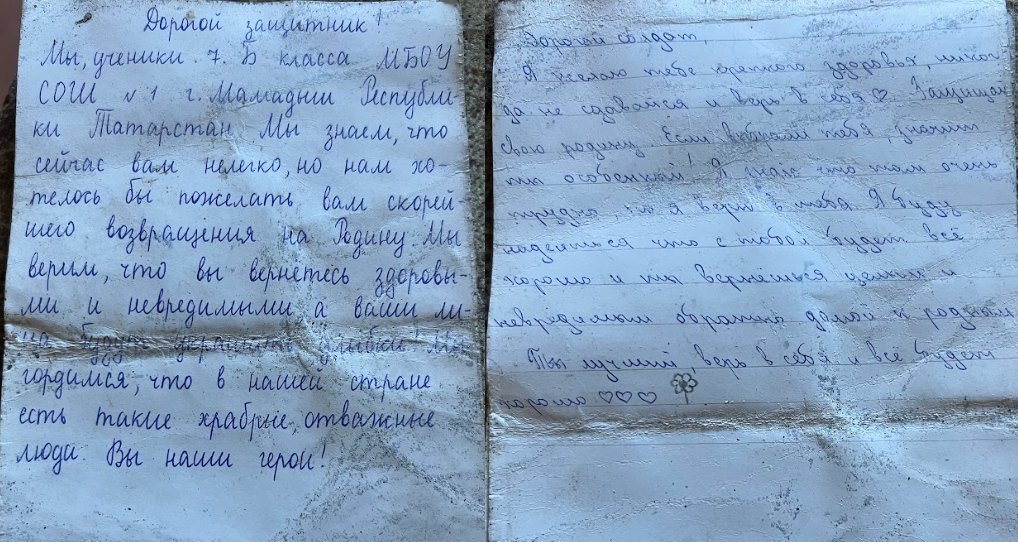 Дорогой защитник!
Мы, ученики 7 Б класса МБОУ
СОШ №1 г. Мамадыш Республи-
ки Татарстан Мы знаем, что
сейчас вам нелегко, но нам хо-
телось бы пожелать вам скорей-
шего возвращения на Родину. Мы
верим, что вы вернетесь здоровы-
ми и невредимыми а ваши ли-
ца будут украшать улыбки! Мы
гордимся, что в нашей стране
есть такие храбрые, отважные
люди. Вы наши герои!
Дорогой солдат,
Я желаю тебе крепкого здоровья, никог
да не сдавайся и верь в себя ♡. Защищай
свою родину. Если выбрали тебя, значит
ты особенный! Я знаю что там очень
трудно, но я верю в тебя. Я буду
надеятся что с тобой будет всё
хорошо и ты вернёшься целым и
невредимым обратно домой к родным
Ты лучший, верь в себя и все будет
хорошо ♡♡♡